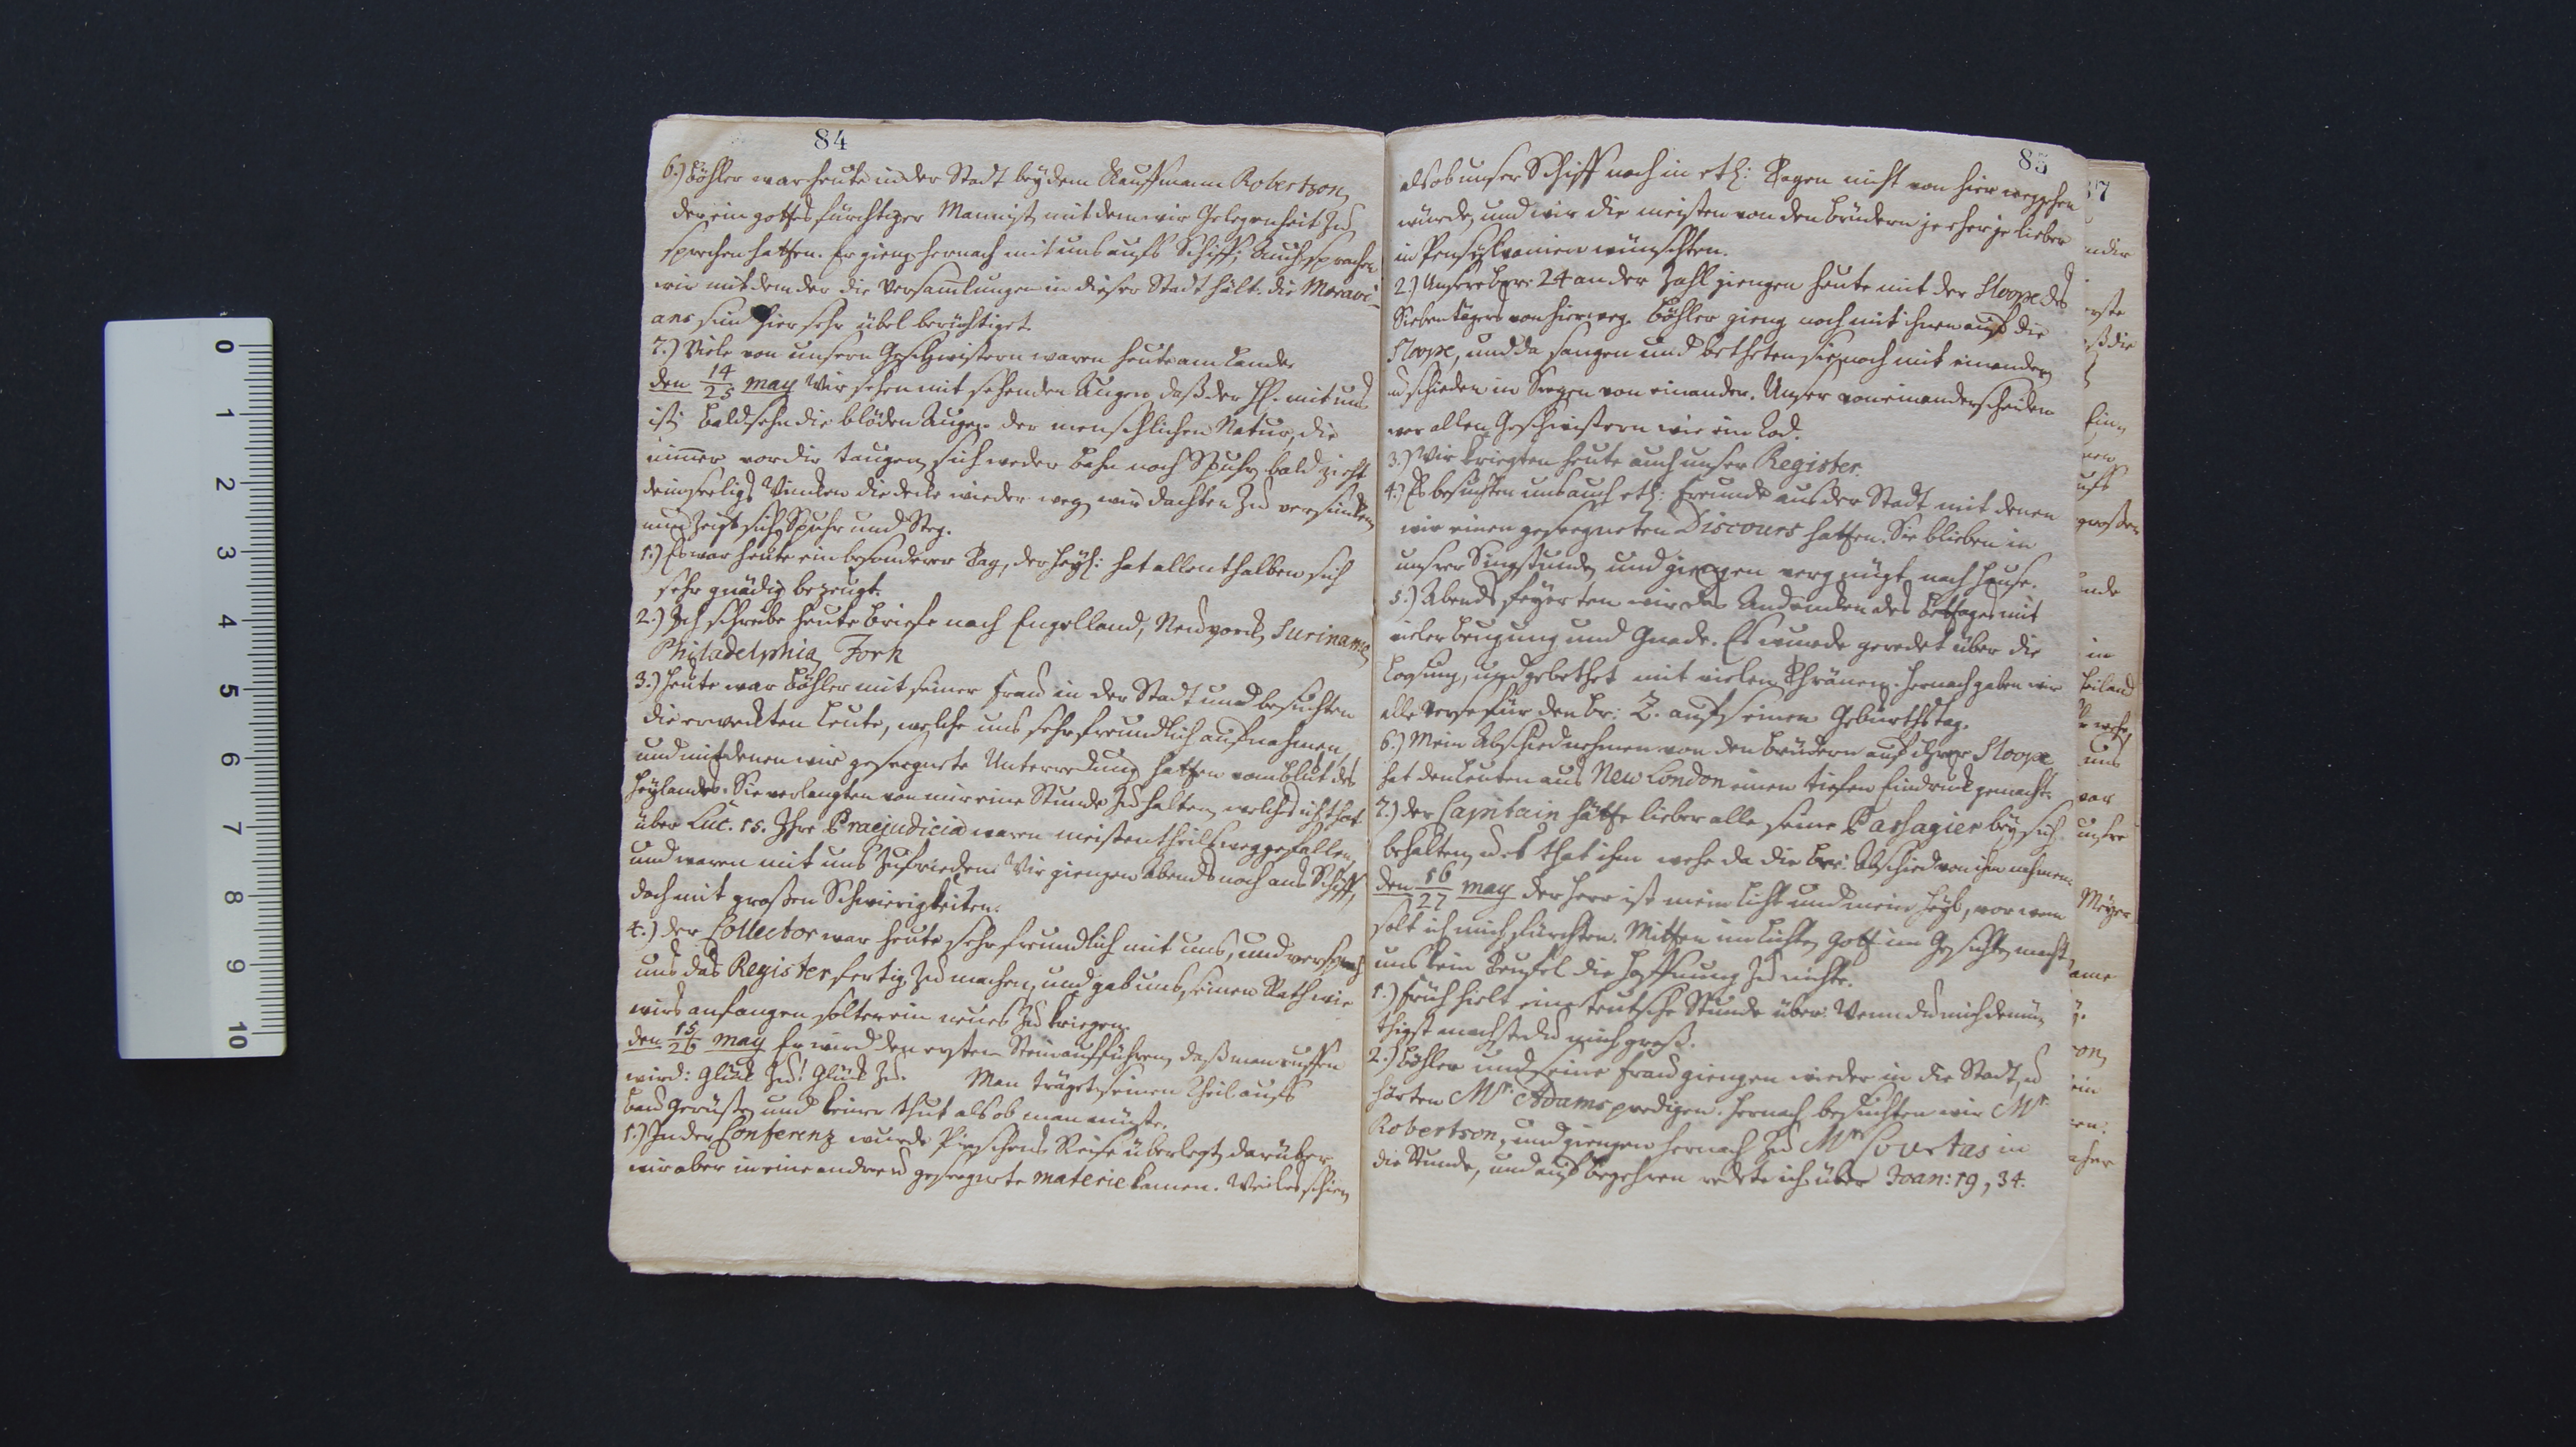 84
6.) Böhler war heute in der Stadt bey dem Kauffmann Robertson,
der ein gottesfürchtiger Mann ist, mit dem wir Gelegenheit zu
sprechen hatten. Er gieng hernach mit uns aufs Schiff; Auch sprachen
wir mit dem der die Versamlungen in dieser Stadt hält. die Moravi-
ans sind hier sehr übel berüchtiget.
7.) Viele von unsern Geschwistern waren heute am Lande.
den 14/25 may Wir sehen mit sehenden Augen daß der Hr. mit uns
ist; bald sehn die blöden Augen der menschlichen Natur, die
immer vor dir taugen, sich weder Bahn noch Spuhr, bald zieht
dein seeligs Wincken die decke wieder weg, wir dachten zu versincken,
nun zeigt sich Spuhr und Steg.
1.) Es war heute ein besonderer Tag, der Heyl: hat allenthalben sich
sehr gnädig bezeugt.
2.) Ich schriebe heute Briefe nach Engelland, Neuyorck, Suriname,
Philadelphia, Fork
3.) Heute war Böhler mit seiner Frau in der Stadt und besuchten
die erweckten Leute, welche uns sehr freundlich aufnahmen,
und mit denen wir gesegnete Unterredung hatten vom Blut des
Heylandes. Sie verlangten von mir eine Stunde zu halten, welches ich that
über Luc. 15. Ihre Praejudicia waren meistentheils weggefallen,
und waren mit uns zufrieden. Wir giengen Abends noch ans Schiff,
doch mit großen Schwierigkeiten.
4.) Der Collector war heute sehr freundlich mit uns, und versprach
uns das Register fertig zu machen, und gab uns seinen Rath wie
wirs anfangen solten ein neues zu kriegen.
den 15/26 may Er wird den ersten Stein aufführen, daß man ruffen
wird: Glück zu! Glück zu. Man träget seinen Theil aufs
Bau Gerüste, und keiner thut als ob man müste.
1.) In der Conferenz wurde Reise überlegt, darüber
wir aber in eine andre u gesegnete materie kamen. Weil es schien,
85
als ob unser Schiff noch in etl: Tagen nicht von hier weggehen
würde, und wir die meisten von den Brüdern je eher je lieber
in Pensylvanien wünschten.
2.) Unsere Brr: 24 an der Zahl giengen heute mit der Sloope des
Siebentägers von hier weg. Böhler gieng noch mit ihnen auf die
Sloope, und da sangen und betheten sie noch mit einander,
u schieden in Segen von einander. Unser von einander scheiden
war allen Geschwistern wie ein Tod.
3.) Wir kriegten heute auch unser Register.
4.) Es besuchten uns auch etl: Freunde aus der Stadt mit denen
wir einen gesegneten Discours hatten. Sie blieben in
unsrer Singstunde, und giengen vergnügt nach Hause.
5.) Abends feyerten wir das Andencken des Bettages mit
vieler Beugung und Gnade. Es wurde geredet über die
Losung, und gebethet mit vielen Thränen. Hernach gaben wir
alle Verse für den Br: Z. auf seinen Geburthstag.
6.) Mein Abschied nehmen von den Brüdern auf ihrer Sloope
hat den Leuten aus New London einen tiefen Eindruck gemacht.
7.) Der Capitain hätte lieber alle seine Passagier bey sich
behalten, u es that ihm wehe da die Brr: Abschied von ihm nahmen.
den 16/27 may Der Herr ist mein Licht und mein Heyl, vor wem
solt ich mich fürchten. Mitten im Lichte, Gott im Gesichte, macht
uns kein Teufel die Hoffnung zu nichte.
1.) Früh hielt eine teutsche Stunde über: Wenn du mich demü-
thigst machstu mich groß.
2.) Böhler und seine Frau giengen wieder in die Stadt, u
hörten Mr. Adams predigen. Hernach besuchten wir Mr
Robertson, und giengen hernach zu Mr Courtas in
die Stunde, und auf begehren redete ich über Joan: 19, 34.